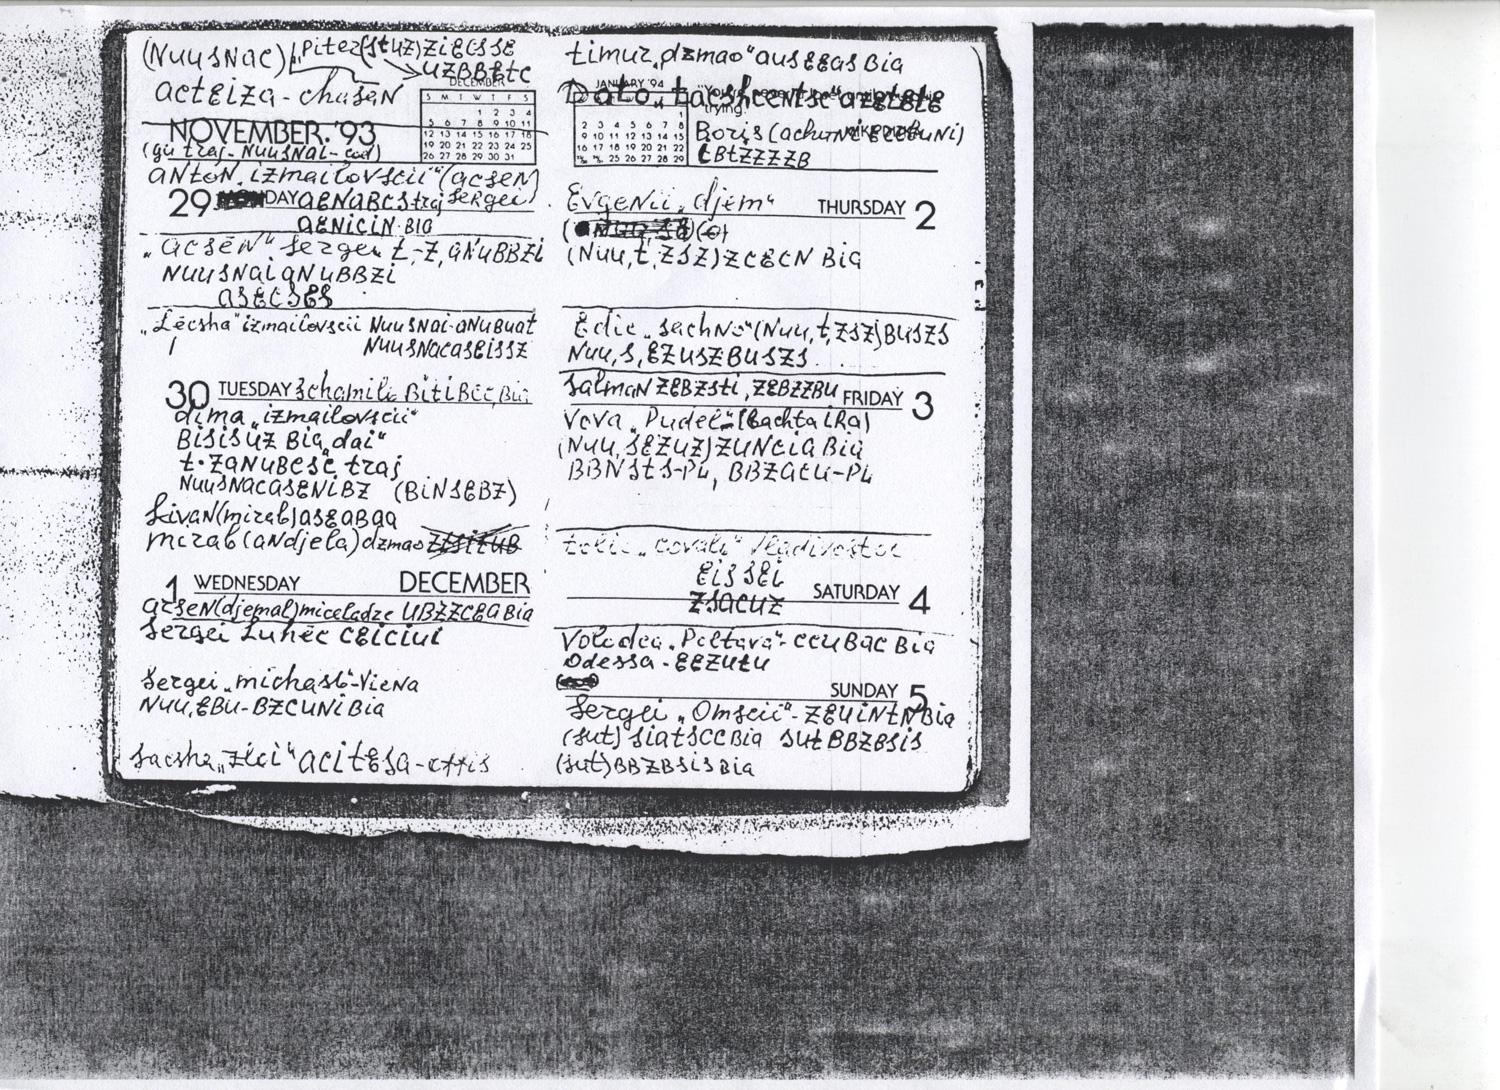 (NuuSNac) Piter(stuz)ZiECSSE
uZBBEtC
actEiza - chasaN
DECEMBER
S M T W T F S
1 2 3 4
5 6 7 8 9 10 11
12 13 14 15 16 17 18
19 20 21 22 23 24 25
26 27 28 29 30 31
NOVEMBER '93
(gu traj - NuuSNai - cod)
aNtoN „izmailovscii“ (acseN)
29 DAY aENaBCS traj Sergei)
aENiCiN Bia
„acseN“ Sergei t,-Z, aNuBBZi
NuuSNai aNuBBZi
aSECSES
„Lecsha“ izmailovscii NuuSNai-aNuBuat
NuuSNacaSEiSSZ
30 TUESDAY Schamili BitiBCC Bia
dima „izmailovscii“
BiSiSuZ Bia „dai“
t-ZaNuBESC traj
NuuSNacaSENiBZ (BiNSEBZ)
LivaN (mirab) aSEaBaa
mirab (aNdjela) dzmao
1 WEDNESDAY DECEMBER
arseN (djemal) miceladze uBZZCEa Bia
Sergei Lunec CEiCiui
Sergei „michasi“ - VieNa
Nuu, EBu - BZCuNi Bia
Sacsha „zlci“ aCitESa - offis
timur „dzmao“ auSEEaS Bia
JANUARY '94
1
2 3 4 5 6 7 8
9 10 11 12 13 14 15
16 17 18 19 20 21 22
25 26 27 28 29
Dato „tacshcentse“ aZEtEtE
trying.
Boris
tBtZZZZB
EvgeNii „djem“ THURSDAY 2
(Nuu, t, ZSZ) ZCECN Bia
Edic „SachNo“ (Nuu, t, ZSZ) BuSZS
Nuu, S, EZuSZBuSZS
SalmaN ZEBZSti, ZEBZZBu FRIDAY 3
Vova „Pudel“ (Bachta iRa)
(Nuu, SEZuZ) ZuNCiA Bia
BBNStS-Pu, BBZatu-Pu
tolic „covali“ Vladivostoc
EiSSEi
ZSaCuZ SATURDAY 4
Volodea „Poltava“ - CCuBaC Bia
Odessa - EEZutu
SUNDAY 5
Sergei „Omscii“ - ZEuiNtN Bia
(Sut) SiatSCC Bia Sut BBZBSiS
(Sut) BBZBSiS Bia